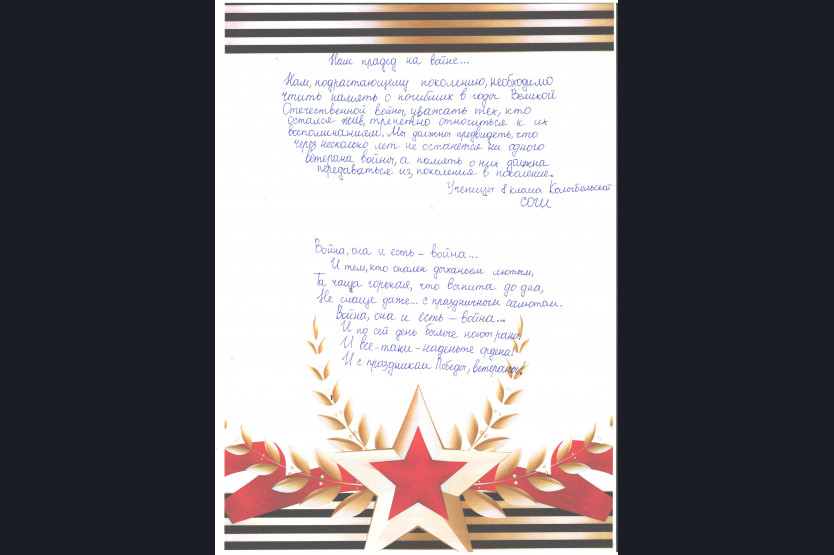 Наш прадед на войне...
Нам, подрастающему поколению, необходимо
чтить память о погибших в годы Великой
Отечественной войны, уважать тех, кто
остался жив, трепетно относиться к их
воспоминаниям. Мы должны предвидеть, что
через несколько лет не останется ни одного
ветерана войны, а память о них должна
передаваться из поколения в поколение.
Ученицы 8 класса Колыбельской
СОШ
Война, она и есть – война...
И тем, кто опален дыханьем лютым,
Та чаща горькая, что выпита до дна,
Не слаще даже... с праздничным салютом.
Война, она и есть – война...
И по сей день болью ноют раны
И все-таки – наденьте ордена!
И с праздником Победы, ветераны!